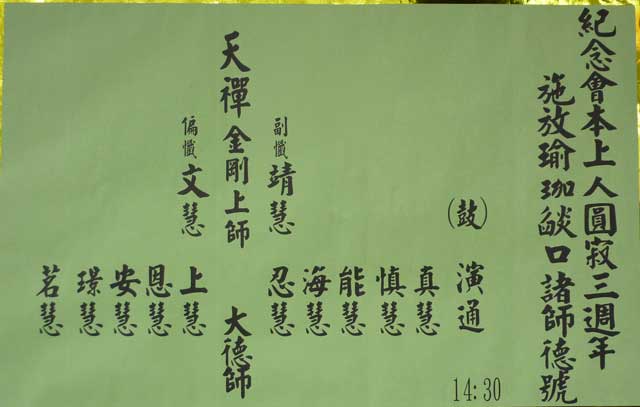 紀念會本上人圓寂三週年
施放瑜珈燄口諸師德號
(鼓) 演通
真慧
慎慧
能慧
海慧
忍慧
副懺 靖慧
天禪金剛上師 大德師
偏懺 文慧
上慧
恩慧
安慧
璟慧
茗慧
14:30